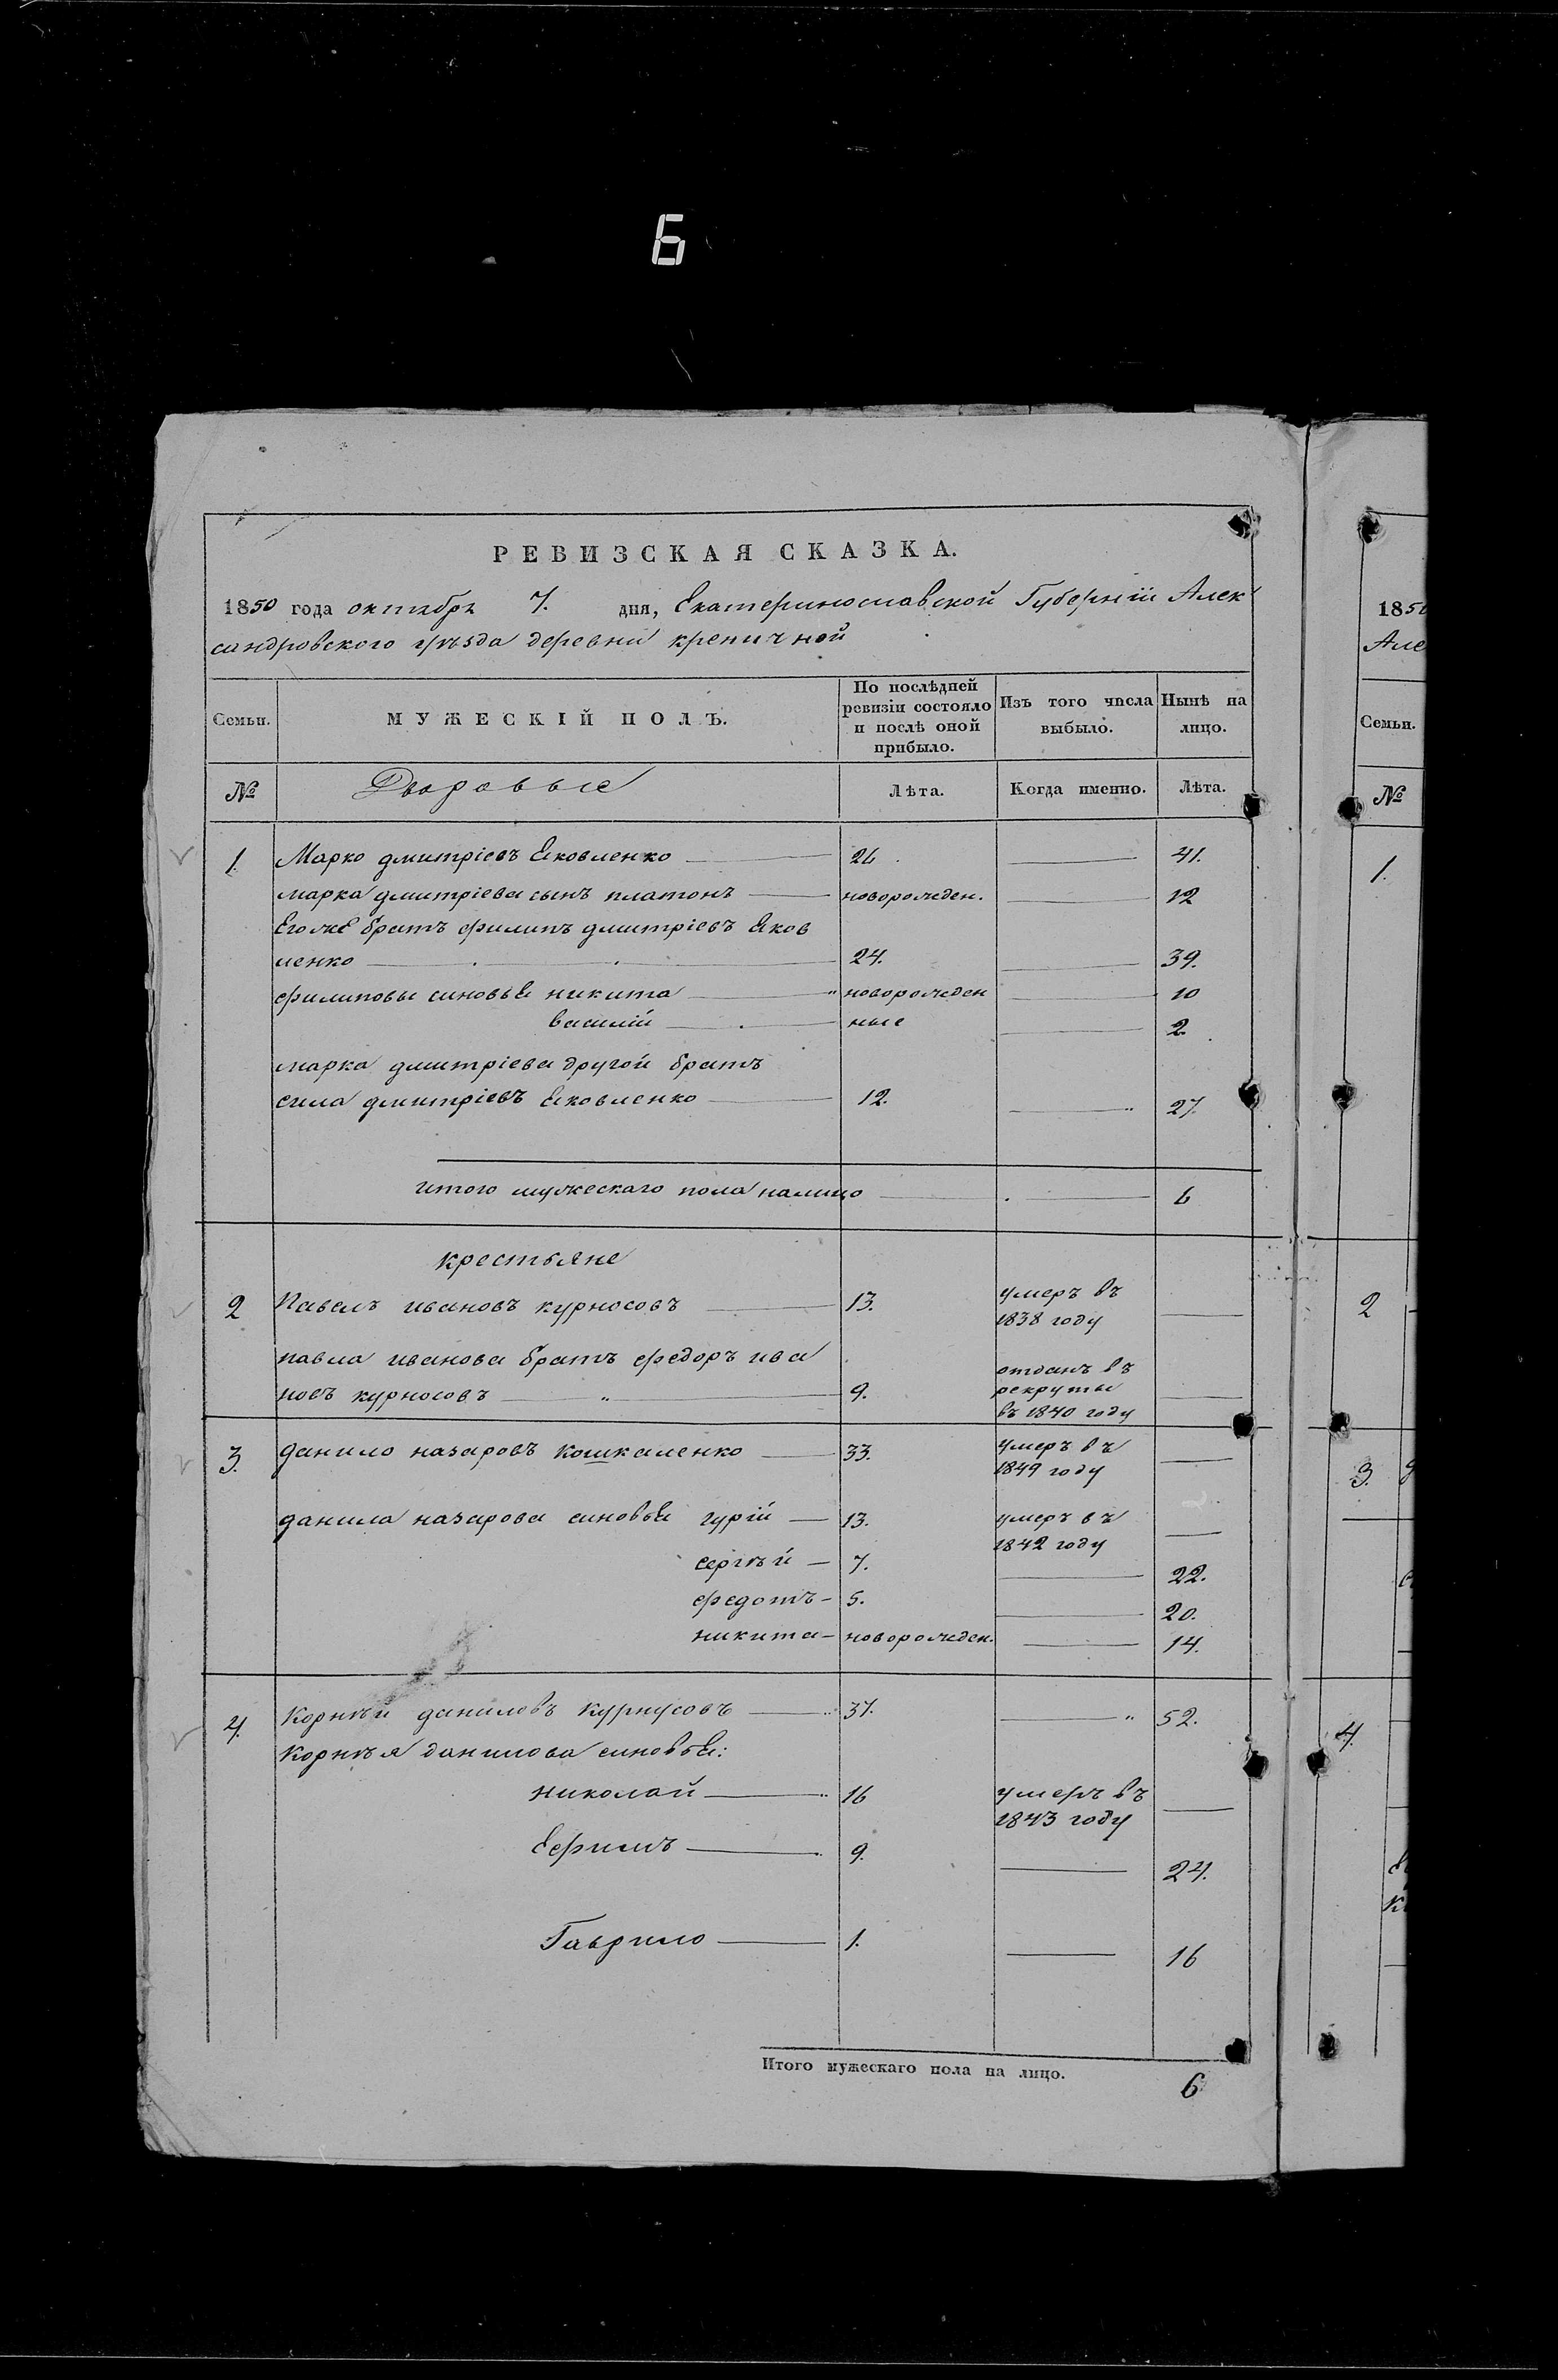 Б
РЕВИЗСКАЯ СКАЗКА.
1850 года октября 7. дня, Екатеринославской Губерніи Алек
сандровского уѣзда деревни креничной
Семьи. МУЖЕСКІЙ ПОЛЪ. По послѣдней ревизіи состояло и послѣ оной прибыло. Изъ того числа выбыло. Нынѣ на лицо.
№ Дворовые Лѣта. Когда именно. Лѣта.
1. Марко дмитріевъ Яковленко 26 41.
марка дмитріева сынъ платонъ новорожден. 12
Его же братъ филипъ дмитріевъ Яков
ленко 24. 39.
филиповы синовья никита новорожден 10
василій ные 2.
марка дмитріева другой братъ
сила дмитріевъ Яковленко 12. 27.
итого мужескаго пола налицо 6
крестьяне
2 Павелъ ивановъ курносовъ 13. умеръ въ
1838 году
павла иванова братъ федоръ ива
новъ курносовъ 9. отданъ въ
рекруты
въ 1840 году
3. данило назаровъ кошкаленко 33. умеръ въ
1849 году
данила назарова синовья гурій 13. умеръ въ
1842 году
сергѣй 7. 22.
федотъ 5. 20.
никита новорожден. 14.
4. Корнѣй даниловъ Курнусовъ 37. 52.
Корнѣя данилова синовья:
николай 16 умеръ въ
1843 году
Ефимъ 9. 24.
Гаврило 1. 16
Итого мужескаго пола на лицо. 6
185
Але
Семьи.
№
1.
2
3.
4.